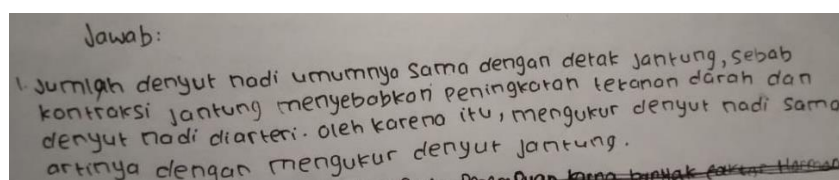 Jawab:
1. Jumlah denyut nadi umumnya sama dengan detak jantung, sebab
kontraksi jantung menyebabkan peningkatan tekanan darah dan
denyut nadi diarteri. oleh karena itu, mengukur denyut nadi sama
artinya dengan mengukur denyut jantung.
karna banyak faktor